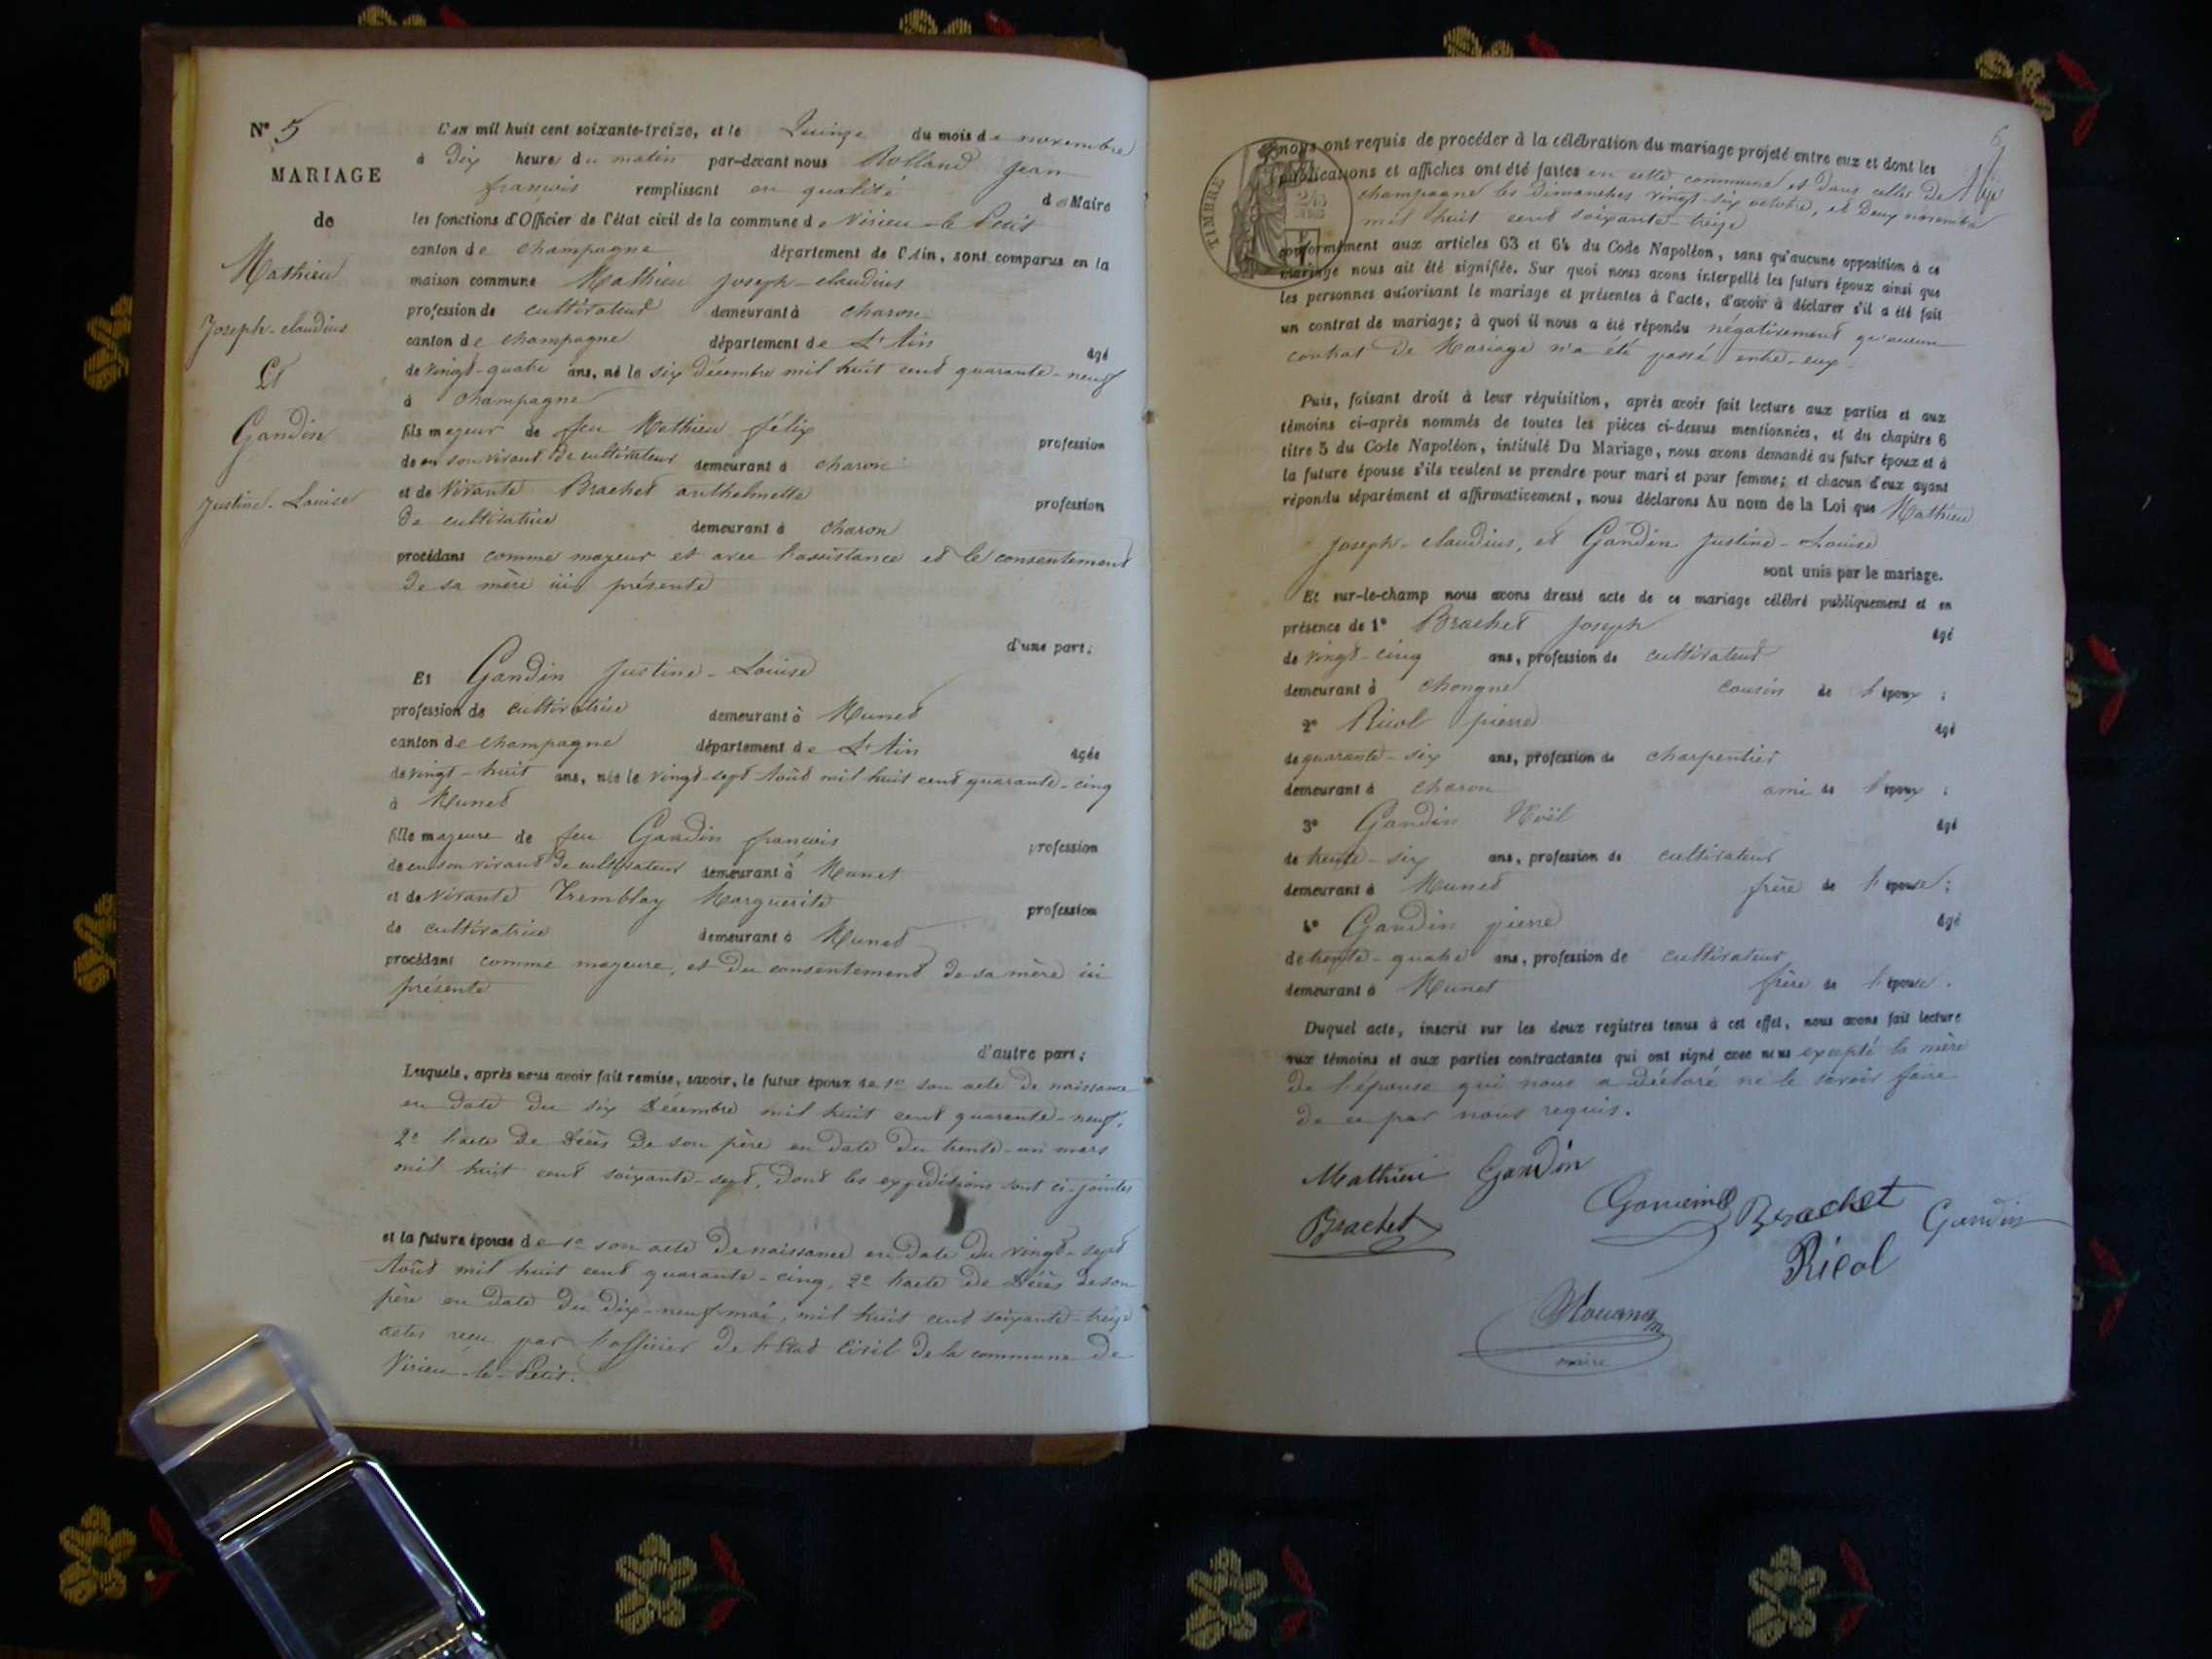 N° 5
MARIAGE
de
Mathieu
Joseph-claudius
Et
Gandin
Justine-Louise
L'an mil huit cent soixante-treize, et le Quinze du mois de novembre
à Dix heures du matin par-devant nous Rolland Jean
françois remplissant en qualité de Maire
les fonctions d'Officier de l'état civil de la commune de Virieu-le-Petit
canton de champagne département de l'Ain, sont comparus en la
maison commune Mathieu Joseph-claudius
profession de cultivateur demeurant à charon
canton de champagne département de L'Ain
âgé
de vingt-quatre ans, né le six décembre mil huit cent quarante-neuf
à champagne
fils majeur de feu Mathieu félix
profession
de en son vivant de cultivateur demeurant à charon
et de vivante Brachet anthelmette
profession
de cultivatrice demeurant à charon
procédant comme majeur et avec l'assistance et le consentement
de sa mère ici présente
d'une part;
Et Gandin Justine-Louise
profession de cultivatrice demeurant à Munet
canton de champagne département de L'Ain
âgée
de vingt-huit ans, née le vingt-sept Août mil huit cent quarante-cinq
à Munet
fille majeure de feu Gandin françois
profession
de en son vivant de cultivateur demeurant à Munet
et de vivante Tremblay Marguerite
profession
de cultivatrice demeurant à Munet
procédant comme majeure, et du consentement de sa mère ici
présente
d'autre part;
Lesquels, après nous avoir fait remise, savoir, le futur époux de 1° son acte de naissance
en date du six Décembre mil huit cent quarante-neuf,
2° l'acte de Décès de son père en date du trente-un mars
mil huit cent soixante-sept, dont les expéditions sont ci-jointes
et la future épouse de 1° son acte de naissance en date du vingt-sept
Août mil huit cent quarante-cinq, 2° l'acte de Décès de son
père en date du dix-neuf mai, mil huit cent soixante-treize
actes reçu par l'officier de l'Etat Civil de la commune de
Virieu-le-Petit.
6
TIMBRE
nous ont requis de procéder à la célébration du mariage projeté entre eux et dont les
publications et affiches ont été faites en cette commune et dans celle de
champagne les dimanches vingt-six octobre, et deux novembre
mil huit cent soixante-treize
conformément aux articles 63 et 64 du Code Napoléon, sans qu'aucune opposition à ce
mariage nous ait été signifiée. Sur quoi nous avons interpellé les futurs époux ainsi que
les personnes autorisant le mariage et présentes à l'acte, d'avoir à déclarer s'il a été fait
un contrat de mariage; à quoi il nous a été répondu négativement qu'aucun
contrat de Mariage n'a été passé entre-eux
Puis, faisant droit à leur réquisition, après avoir fait lecture aux parties et aux
témoins ci-après nommés de toutes les pièces ci-dessus mentionnées, et du chapitre 6
titre 5 du Code Napoléon, intitulé Du Mariage, nous avons demandé au futur époux et à
la future épouse s'ils veulent se prendre pour mari et pour femme; et chacun d'eux ayant
répondu séparément et affirmativement, nous déclarons Au nom de la Loi que Mathieu
Joseph-claudius, et Gandin Justine-Louise
sont unis par le mariage.
Et sur-le-champ nous avons dressé acte de ce mariage célébré publiquement et en
présence de 1° Brachet Joseph
âgé
de vingt-cinq ans, profession de cultivateur
demeurant à chongne cousin de l'époux;
2° Ricol pierre
âgé
de quarante-six ans, profession de charpentier
demeurant à charon ami de l'époux;
3° Gandin Noël
âgé
de trente-six ans, profession de cultivateur
demeurant à Munet frère de l'épouse;
4° Gandin pierre
âgé
de trente-quatre ans, profession de cultivateur
demeurant à Munet frère de l'épouse.
Duquel acte, inscrit sur les deux registres tenus à cet effet, nous avons fait lecture
aux témoins et aux parties contractantes qui ont signé avec nous excepté la mère
de l'épouse qui nous a déclaré ne le savoir faire
de ce par nous requis.
Mathieu Gandin
Brachet Brachet Gandin
Ricol
maire